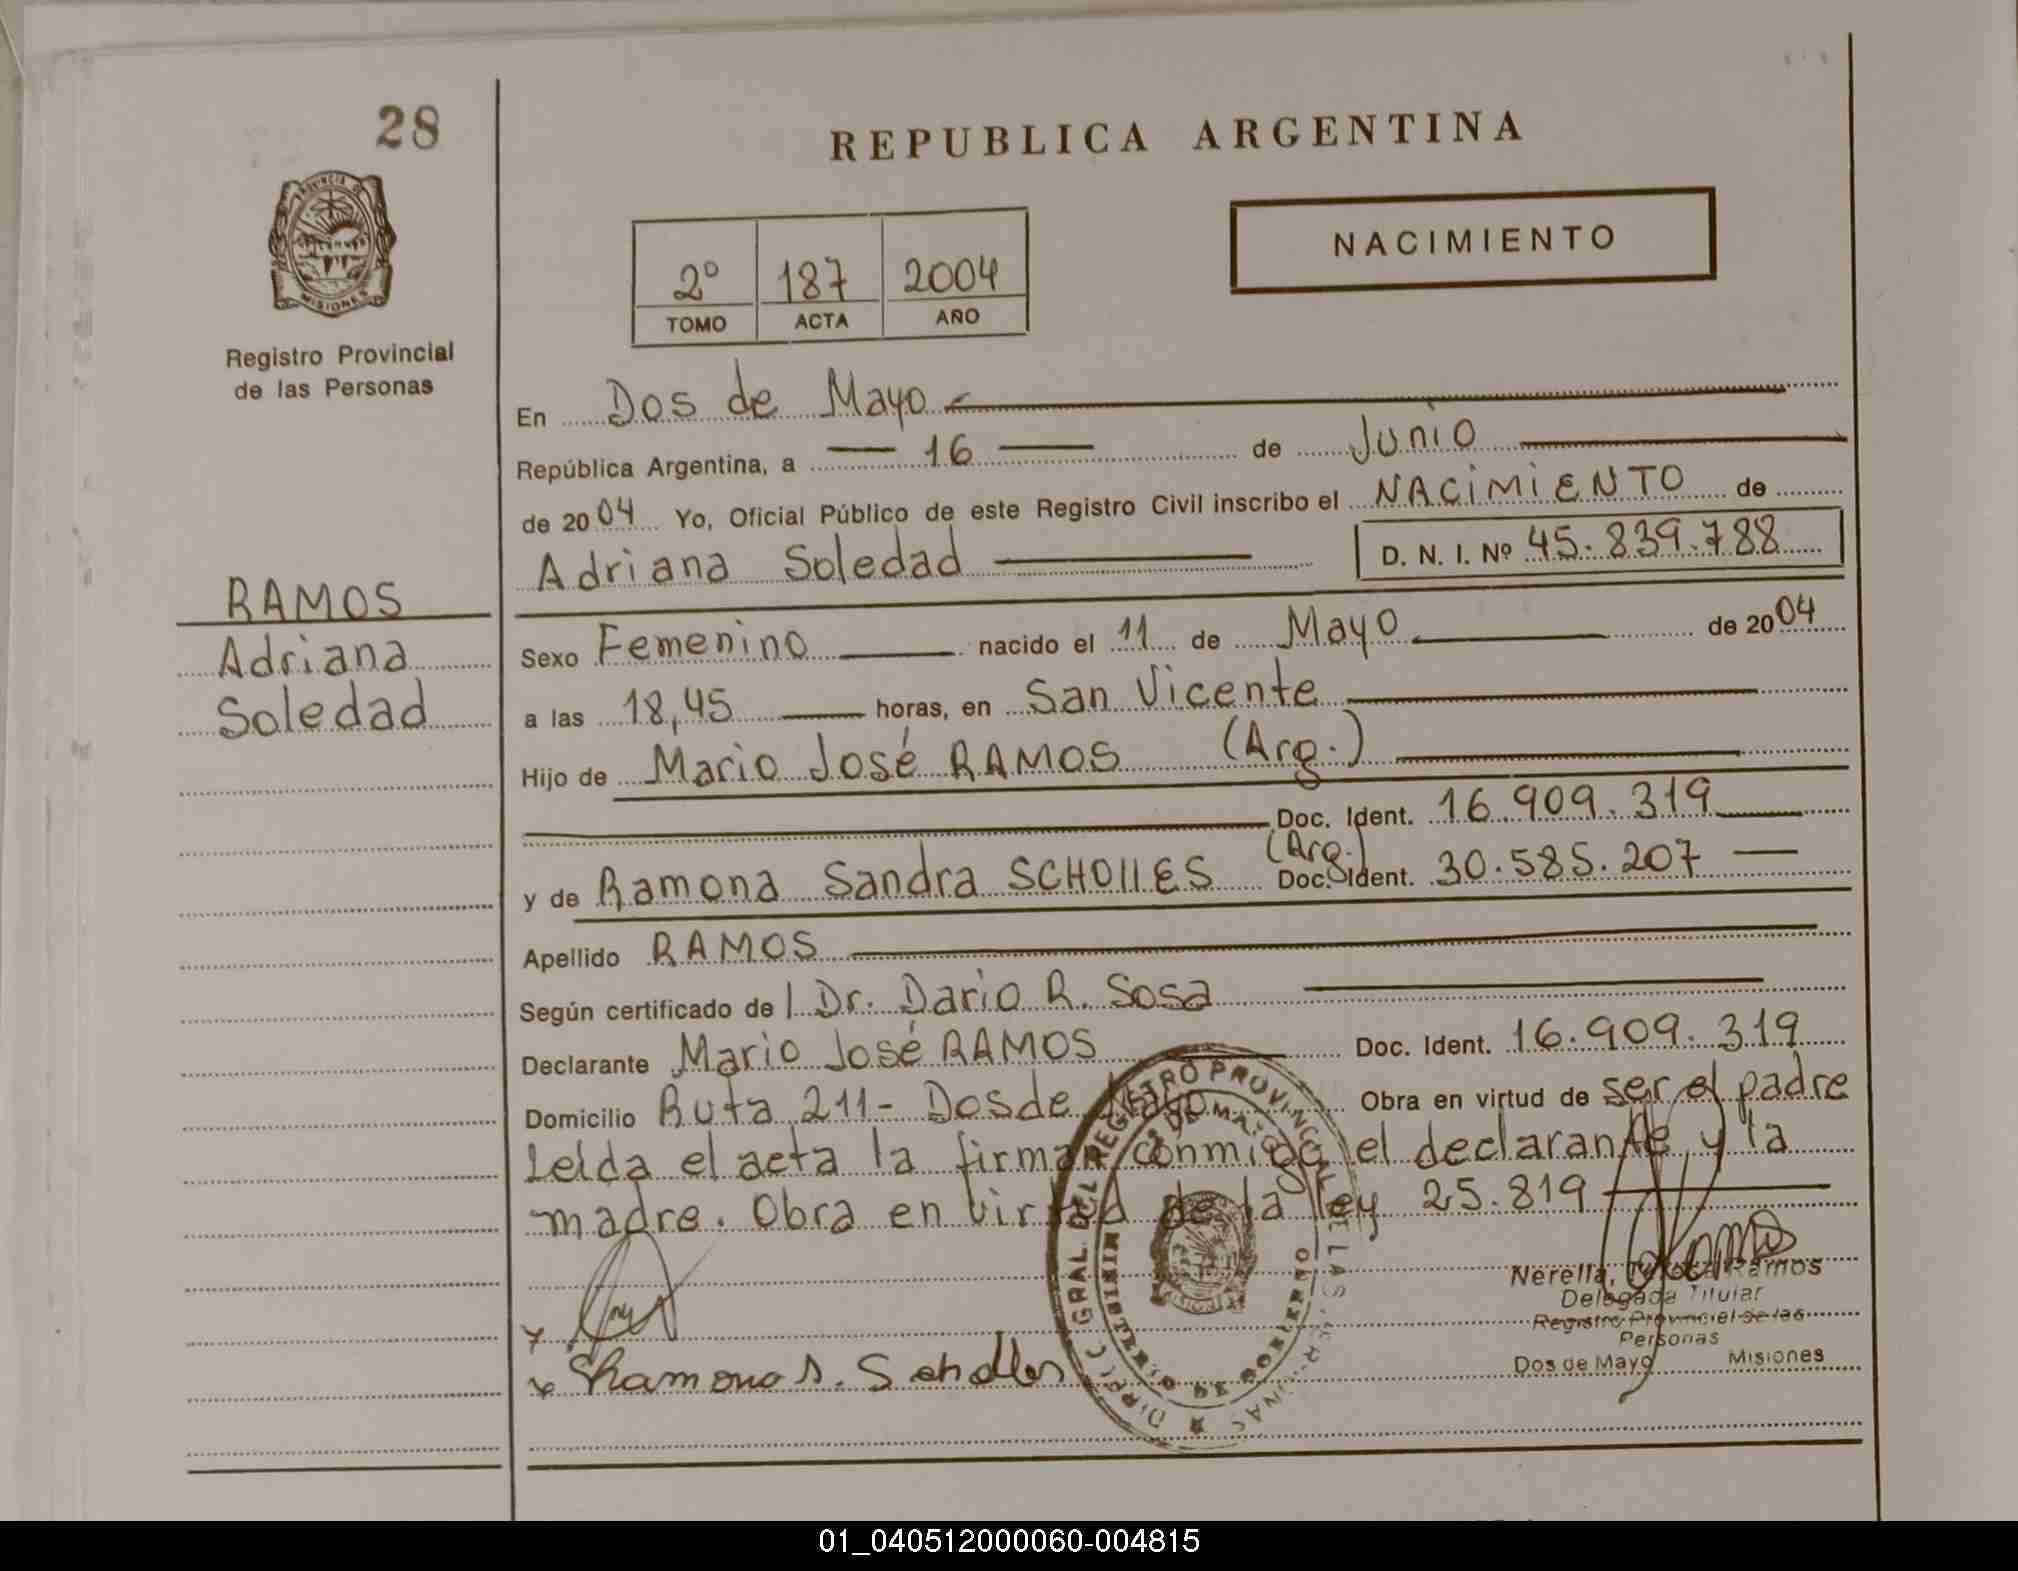 28
REPUBLICA ARGENTINA
NACIMIENTO
2º 187 2004
TOMO ACTA AÑO
PROVINCIA DE
MISIONES
Registro Provincial
de las Personas
En Dos de Mayo
República Argentina, a 16 de Junio
de 2004 Yo, Oficial Público de este Registro Civil inscribo el NACIMIENTO de
Adriana Soledad D. N. I. Nº 45.839.788
RAMOS
Adriana
Soledad
Sexo Femenino nacido el 11 de Mayo de 2004
a las 18,45 horas, en San Vicente
Hijo de Mario José RAMOS (Arg.)
Doc. Ident. 16.909.319
(Arg.)
y de Ramona Sandra SCHOllES Doc. Ident. 30.585.207
Apellido RAMOS
Según certificado de Dr. Dario R. Sosa
Declarante Mario José RAMOS Doc. Ident. 16.909.319
Domicilio Ruta 211 - Dos de Mayo Obra en virtud de ser el padre
Leida el acta la firman conmigo el declarante y la
madre. Obra en virtud de la ley 25.819
Ramona S. Scholles
Nerella, Ramos
Delegada Titular
Registro Provincial de las
Personas
Dos de Mayo Misiones
GRAL. DEL REGISTRO PROVINCIAL DE LAS PERSONAS
MINISTERIO DE GOBIERNO
01_040512000060-004815